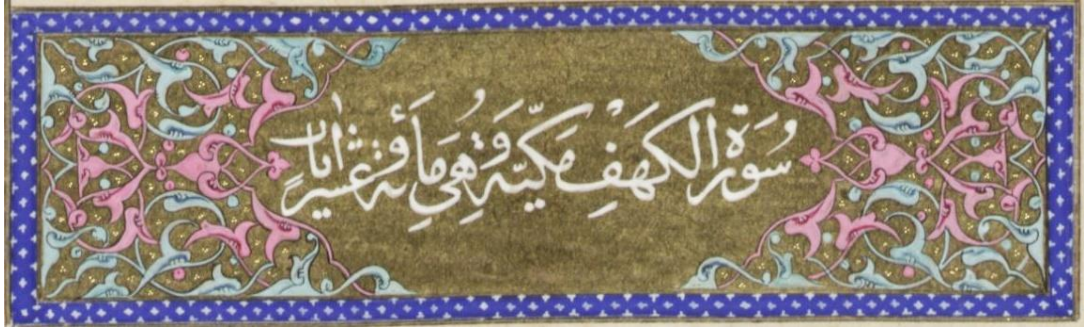 سُورَةُ الكَهْفِ مَكيّة وَهِيَ مَأة وَعَشر اٰيات